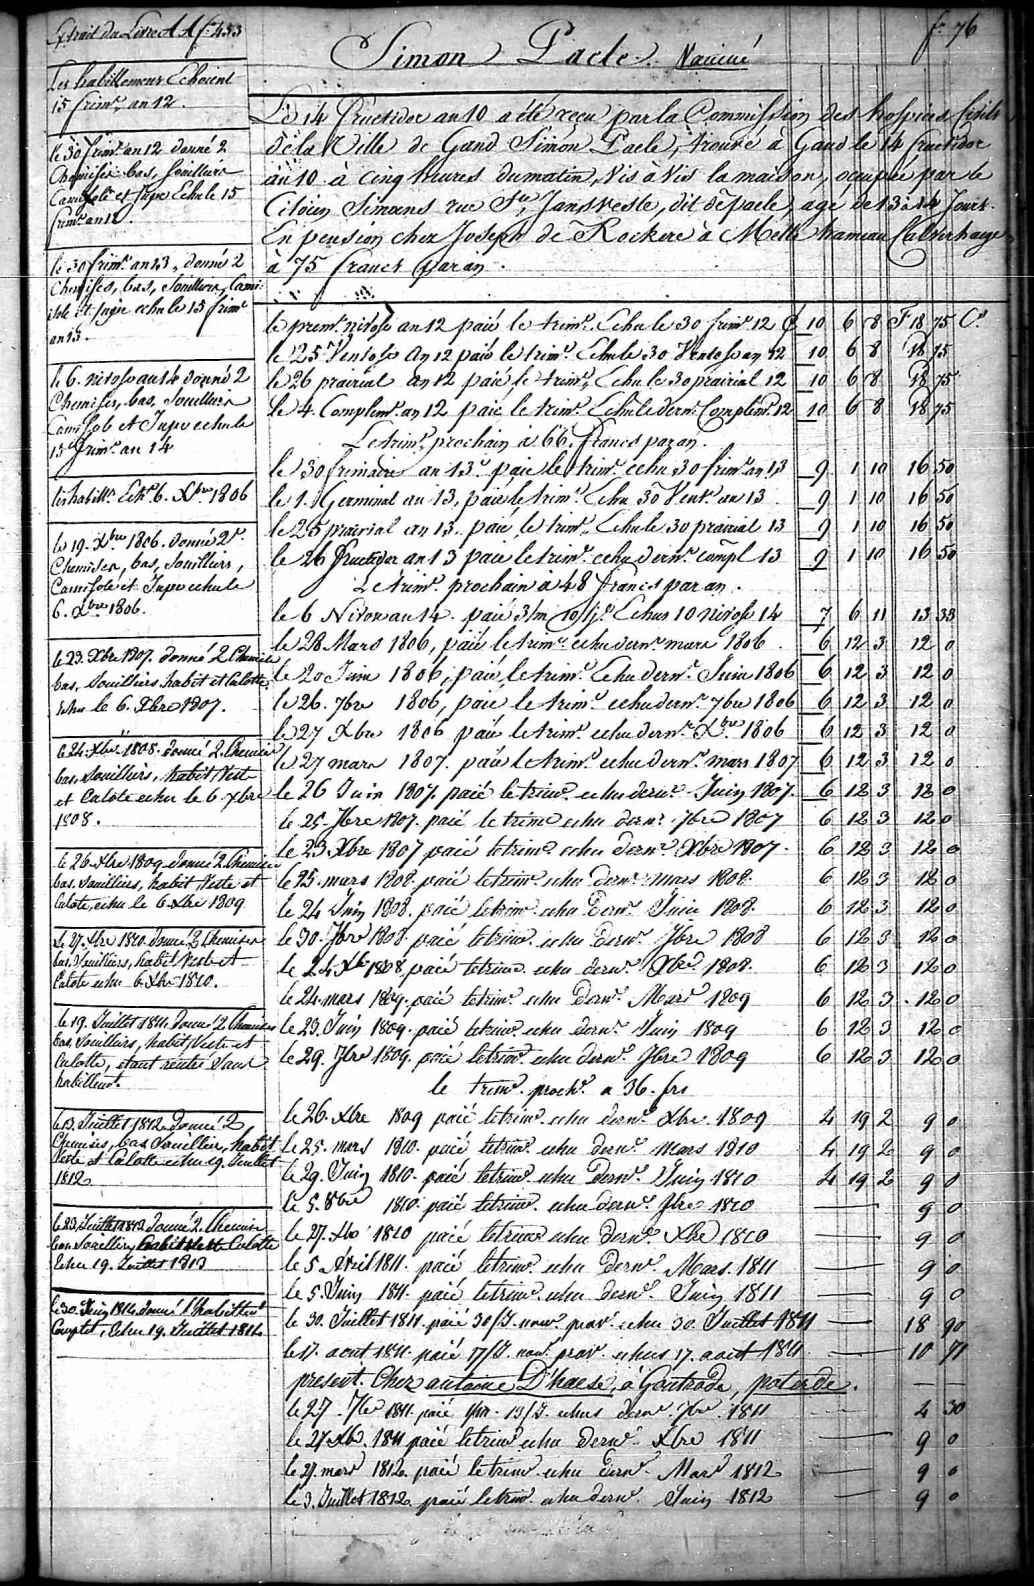 Extrait du Livre A A f.° 453
f.° 76
Simon Pacle. Vacciné
Les habillemens Echoient
15 frim.re an 12.
le 30 frim.re an 12 donné 2
Chemises bas, souilliers
Camisole et Jupe Echu le 15
frim.re an 12.
le 30 frim.re an 13, donné 2
Chemises, bas, Souilliers, Cami-
sole et Jupe echu le 15 frim.re
an 13.
le 6. nivose an 14 donné 2
Chemises, bas, Souilliers
Camisole et Jupe echu le
15 frim.re an 14
les habill.s Ech.s 6. Xbre 1806
le 19. Xbre 1806. donné 2
Chemises, bas, Souilliers,
Camisole et Jupe echu le
6. Xbre 1806.
le 23. Xbre 1807. donné 2 Chemises
bas, Souilliers habit et Culotte
echu le 6. Xbre 1807.
le 24. Xbre 1808. donné 2. Chemises
bas, Souilliers, habit, Veste
et Culote echu le 6. Xbre
1808.
le 26 Xbre 1809 donné 2 Chemises
bas, Souilliers, habit, Veste et
Culote, echu le 6 Xbre 1809
Le 27. Xbre 1810. donné 2 Chemises
bas, Souilliers, habit Veste et
Culote echu 6 Xbre 1810.
le 19. Juillet 1811. donné 2 Chemises
bas, Souilliers, habit, Veste et
Culotte, etant rentré Sans
habillem.t
le 13. Juillet 1812. donné 2
Chemises, bas Souilliers, habit
Veste et Culotte echu 19. Juillet
1812
le 23. Juillet 1813 donné 2. Chemises
bas, Souilliers, habit Veste Culotte
Echu 19. Juillet 1813
le 30. Juin 1814. donné l'habillem.t
Complet, Echu 19. Juillet 1814
Le 14 Fructidor an 10 a été reçu par la Commission des hospices Civils
de la Ville de Gand Simon Pacle, trouvé à Gand le 14 fructidor
an 10 à cinq heures du matin, Vis à Vis la maison, occupée par le
Citoien Simoens rue St. Jans Veste, dit de pacle, agé de 13 à 14 Jours.
En pension chez Joseph de Kockere à Melle hameau
à 75 francs par an.
le prem.r nivose an 12 paié le trim.re Echu le 30 frim.re 12 10 6 8 F 18 75 C.s
le 25 Ventose an 12 paié le trim.re Echu le 30 Ventose an 12 10 6 8 18 75
le 26 prairial an 12 paié le trim.re Echu le 30 prairial 12 10 6 8 18 75
le 4. Complem.re an 12 paié le trim.re Echu le dern.r Complem.re 12 10 6 8 18 75
Le trim.re prochain à 66. francs par an.
le 30 frimaire an 13. paié le trim.re echu 30 frim.re an 13 9 1 10 16 50
le 1. Germinal an 13, paié le trim.re Echu 30 Vent.se an 13 9 1 10 16 50
le 25 prairial an 13. paié le trim.re Echu le 30 prairial 13 9 1 10 16 50
le 26 fructidor an 13 paié le trim.re echu dern.r compl 13 9 1 10 16 50
Le trim.re prochain à 48 francs par an.
le 6 Nivose an 14. paié 3/m 10/j.s Echus 10 nivose 14 7 6 11 13 33
le 28 Mars 1806, paié le trim.re echu dern.r mars 1806 6 12 3 12 0
le 20 Juin 1806, paié le trim.re Echu dern.r Juin 1806 6 12 3 12 0
le 26. 7bre 1806, paié le trim.re echu dern.r 7bre 1806 6 12 3 12 0
le 27 Xbre 1806 paié le trim.re echu dern.r Xbre 1806 6 12 3 12 0
le 27 mars 1807. paié le trim.re echu dern.r mars 1807 6 12 3 12 0
le 26 Juin 1807. paié le trim.re echu dern.r Juin 1807. 6 12 3 12 0
le 25. 7bre 1807. paié le trim.re echu dern.r 7bre 1807 6 12 3 12 0
le 23. Xbre 1807 paié le trim.re echu dern.r Xbre 1807. 6 12 3 12 0
le 25. mars 1808. paié le trim.re echu dern.r mars 1808. 6 12 3 12 0
le 24 Juin 1808. paié le trim.re echu dern.r Juin 1808. 6 12 3 12 0
le 30. 7bre 1808. paié le trim.re echu dern.r 7bre 1808 6 12 3 12 0
le 24. Xbre 1808. paié le trim.re echu dern.r Xbre 1808. 6 12 3 12 0
le 24. mars 1809. paié le trim.re echu dern.r Mars 1809 6 12 3 12 0
le 23. Juin 1809. paié le trim.re echu dern.r Juin 1809 6 12 3 12 0
le 29. 7bre 1809. paié le trim.re echu dern.r 7bre 1809 6 12 3 12 0
le trim.re proch.n a 36. frs
le 26. Xbre 1809 paié le trim.re echu dern.r Xbre 1809 4 19 2 9 0
le 25. mars 1810. paié le trim.re echu dern.r mars 1810 4 19 2 9 0
le 29. Juin 1810. paié le trim.re echu dern.r Juin 1810 4 19 2 9 0
le 5. 8bre 1810. paié le trim.re echu dern.r 7bre 1810 9 0
le 27. Xbre 1810 paié le trim.re echu dern.r Xbre 1810 9 0
le 5. Avril 1811. paié le trim.re echu dern.r Mars 1811 9 0
le 5. Juin 1811. paié le trim.re echu dern.r Juin 1811 9 0
le 30. Juillet 1811. paié 30/J. nouv. prov. echu 30. Juillet 1811 18 90
le 17. aout 1811. paié 17/J. nouv. prov. echus 17. aout 1811 10 71
présent. Chez antoine D'haese, à Gontrode,
le 27. 7bre 1811. paié 1/m. 13/J. echus dern.r 7bre 1811 4 30
le 27 Xbre. 1811 paié le trim.re echu dern.r Xbre 1811 9 0
le 27. mars 1812. paié le trim.re echu dern.r Mars 1812 9 0
le 3. Juillet 1812 paié le trim.re echu dern.r Juin 1812 9 0